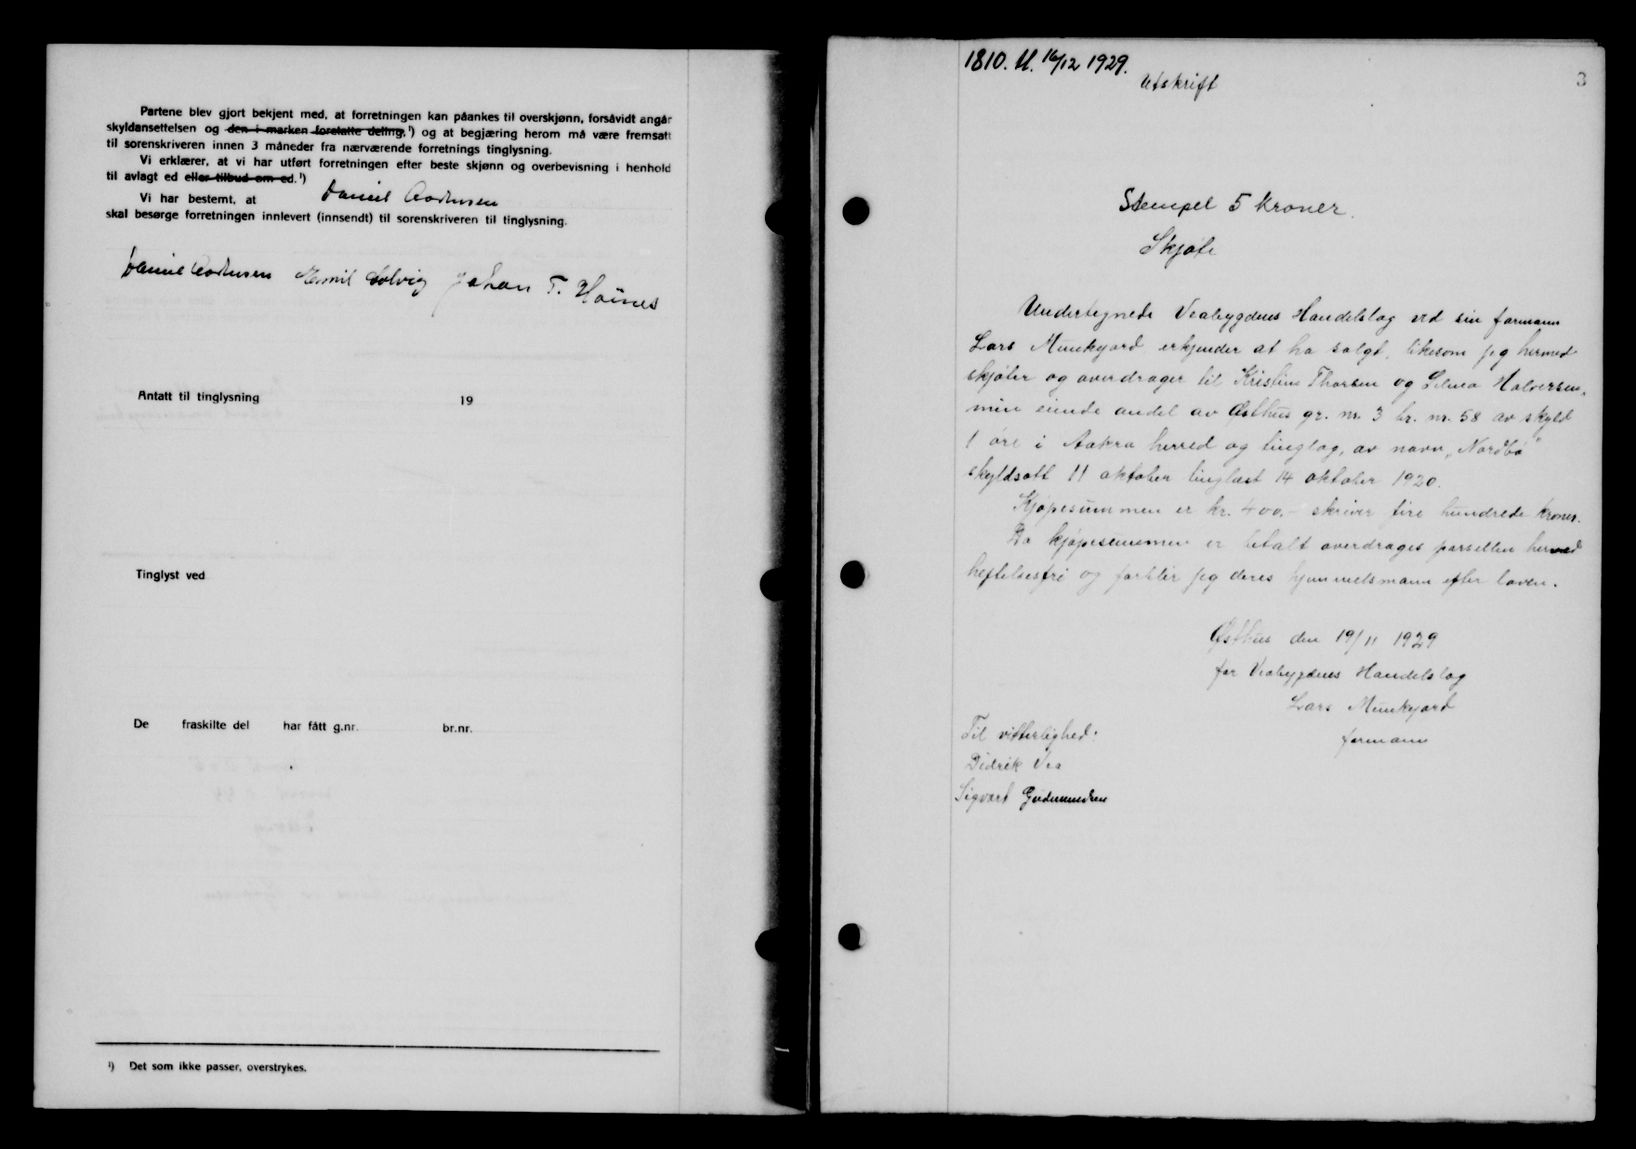 Partene blev gjort bekjent med, at forretningen kan påankes til overskjønn, forsåvidt angår
skyldansettelsen og den i marken foretatte deling,¹) og at begjæring herom må være fremsatt
til sorenskriveren innen 3 måneder fra nærværende forretnings tinglysning.
Vi erklærer, at vi har utført forretningen efter beste skjønn og overbevisning i henhold
til avlagt ed eller tilbud om ed.¹)
Vi har bestemt, at Daniel
skal besørge forretningen innlevert (innsendt) til sorenskriveren til tinglysning.
Daniel Emil Solvig Johan T. Høines
Antatt til tinglysning 19
Tinglyst ved
De fraskilte del har fått g.nr. br.nr.
¹) Det som ikke passer, overstrykes.
1810. U. 16/12 1929.
Utskrift
3
Stempel 5 kroner.
Skjøte
Undertegnede Veabygdens Handelslag ved sin formann
Lars Munkejord erkjender at ha solgt, likesom jeg hermed
skjøter og overdrager til Kristine Thorsen og Selma Halvorsen,
min eiende andel av Østhus gr. nr. 3 br. nr. 58 av skyld
1 øre i Aakra herred og tinglag, av navn „Nordbø"
skyldsatt 11 oktober tinglæst 14 oktober 1920.
Kjøpesummen er kr. 400,- skriver fire hundrede kroner.
Da kjøpesummen er betalt overdrages parsellen hermed
heftelsesfri og forblir jeg deres hjemmelsmann efter loven.
Østhus den 19/11 1929
for Veabygdens Handelslag
Lars Munkejord
formann
Til vitterlighed:
Didrik Vea
Sigvart Gudmundsen